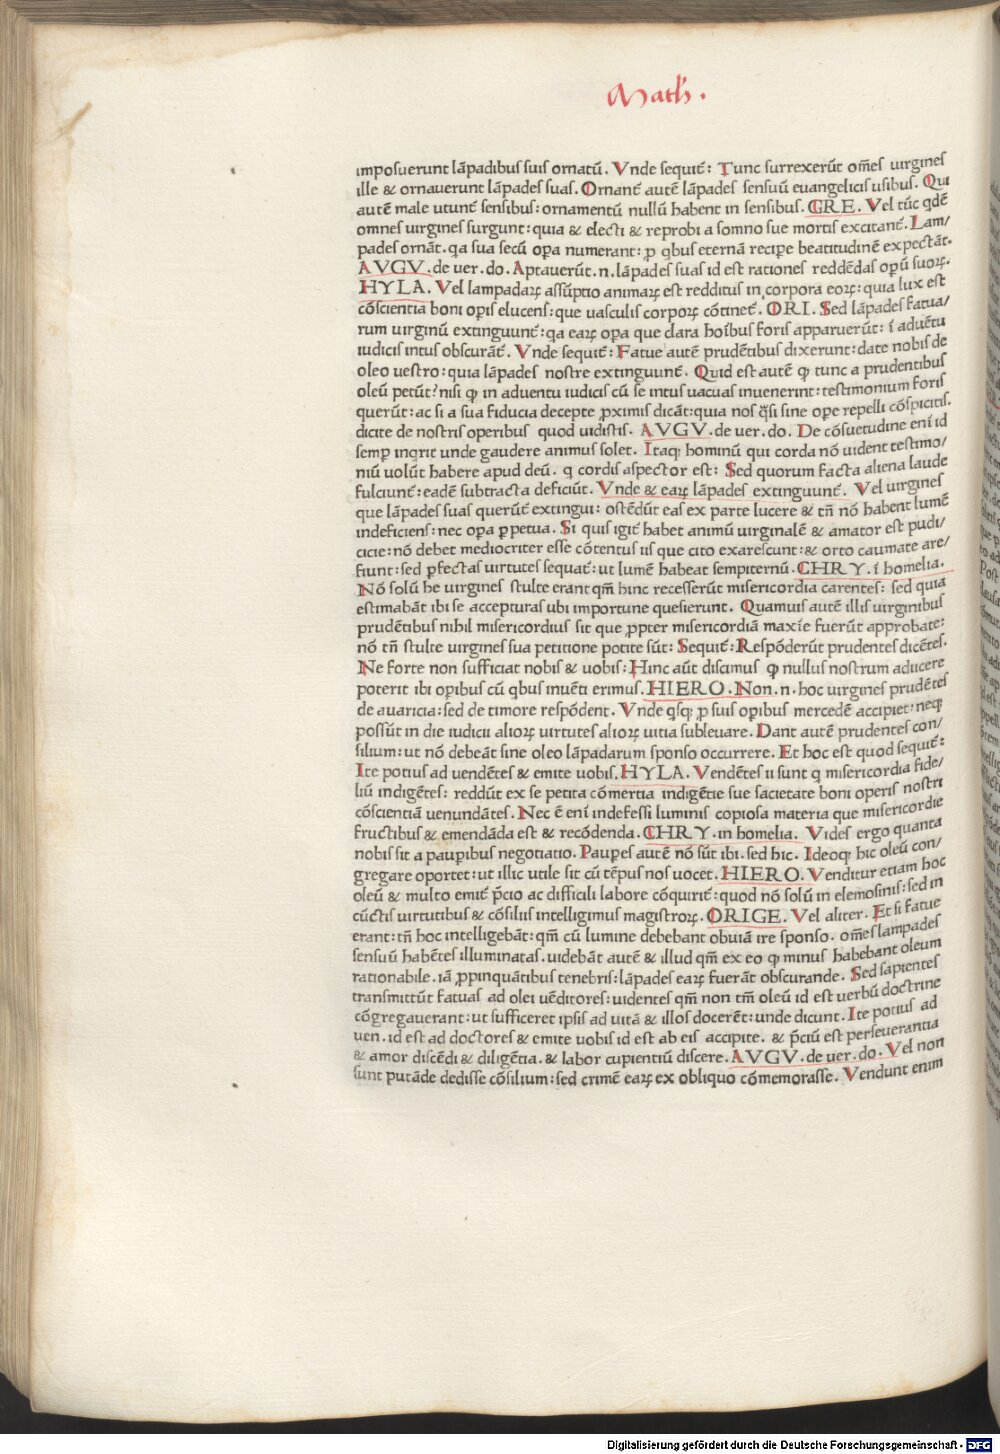 Math.
imposuerunt lāpadibus suis ornatū. Vnde sequit̄: Tunc surrexerūt om̄es uirgines
ille & ornauerunt lāpades suas. Ornant̄ autē lāpades sensuū euangelicis usibus. Qui
autē male utunt̄ sensibus: ornamentū nullū habent in sensibus. GRE. Vel tūc q̇dē
omnes uirgines surgunt: quia & electi & reprobi a somno sue mortis excitant̄. Lam/
pades ornāt. qa sua secū oꝑa numerant: ꝓ qbus eternā recipe beatitudinē expectāt.
AVGV. de uer. do. Aptauerūt .n. lāpades suas id est rationes reddēdas oꝑū suoꝝ.
HYLA. Vel lampadaꝝ assūptio animaꝝ est redditus in corpora eoꝝ: quia lux est
cōscientia boni oꝑis elucens: que uasculis corpoꝝ cōtinet̄. ORI. Sed lāpades fatua/
rum uirginū extinguunt̄: qa eaꝝ oꝑa que clara hoībus foris apparuerūt: ī aduētu
iudicis intus obscurāt̄. Vnde sequit̄: Fatue autē prudētibus dixerunt: date nobis de
oleo uestro: quia lāpades nostre extinguunt̄. Quid est autē ꝙ tunc a prudentibus
oleū petūt? nisi ꝙ in aduentu iudicis cū se intus uacuas inuenerint: testimonium foris
querūt: ac si a sua fiducia decepte ꝓximis dicāt: quia nos q̄si sine oꝑe repelli cōspicitis.
dicite de nostris operibus quod uidistis. AVGV. de uer. do. De cōsuetudine enī id
semꝑ inqrit unde gaudere animus solet. Itaqꝫ hominū qui corda nō uident testimo/
niū uolūt habere apud deū. q cordis aspector est: Sed quorum facta aliena laude
fulciunt̄: eadē subtracta deficiūt. Vnde & eaꝝ lāpades extinguunt̄. Vel uirgines
que lāpades suas querūt̄ extingui: ostēdūt eas ex parte lucere & tn̄ nō habent lumē
indeficiens: nec oꝑa ꝑpetua. Si quis igit̄ habet animū uirginalē & amator est pudi/
cicie: nō debet mediocriter esse cōtentus iis que cito exarescunt: & orto caumate are/
fiunt: sed ꝑfectas uirtutes sequat̄: ut lumē habeat sempiternū. CHRY. ī homelia.
Nō solū he uirgines stulte erant qm̄ hinc recesserūt misericordia carentes: sed quia
estimabāt ibi se accepturas ubi importune quesierunt. Quamuis autē illis uirginibus
prudētibus nihil misericordius sit que ꝓpter misericordiā maxīe fuerūt approbate:
nō tn̄ stulte uirgines sua petitione potite sūt: Sequit̄: Respōderūt prudentes dicētes.
Ne forte non sufficiat nobis & uobis: Hinc aūt discimus ꝙ nullus nostrum adiicere
poterit ibi oꝑibus cū qbus inuēti erimus. HIERO. Non .n. hoc uirgines prudētes
de auaricia: sed de timore respōdent. Vnde qsqꝫ ꝓ suis oꝑibus mercedē accipiet: neqꝫ
possūt in die iudicii alioꝝ uirtutes alioꝝ uitia subleuare. Dant autē prudentes con/
silium: ut nō debeāt sine oleo lāpadarum sponso occurrere. Et hoc est quod sequit̄:
Ite potius ad uendētes & emite uobis. HYLA. Vendētes ii sunt q misericordia fide/
liū indigētes: reddūt ex se petita cōmertia indigētie sue sacietate boni operis nostri
cōscientiā uenundātes. Nec ē enī indefessi luminis copiosa materia que misericordie
fructibus & emendāda est & recōdenda. CHRY. in homelia. Vides ergo quanta
nobis sit a pauꝑibus negotiatio. Pauꝑes autē nō sūt ibi. sed hic. Ideoqꝫ hic oleū con/
gregare oportet: ut illic utile sit cū tēpus nos uocet. HIERO. Venditur etiam hoc
oleū & multo emit̄ p̄cio ac difficili labore cōquirit̄: quod nō solū in elemosinis: sed in
cūctis uirtutibus & cōsiliis intelligimus magistroꝝ. ORIGE. Vel aliter. Et si fatue
erant: tn̄ hoc intelligebāt: qm̄ cū lumine debebant obuiā ire sponso. om̄es lampades
sensuū habētes illuminatas. uidebāt autē & illud qm̄ ex eo ꝙ minus habebant oleum
rationabile. iā ꝓpinquātibus tenebris: lāpades eaꝝ fuerāt obscurande. Sed sapientes
transmittūt fatuas ad olei uēditores: uidentes qm̄ non tm̄ oleū id est uerbū doctrine
cōgregauerant: ut sufficeret ipsis ad uitā & illos docerēt: unde dicunt. Ite potius ad
uen. id est ad doctores & emite uobis id est ab eis accipite. & p̄ciū est perseuerantia
& amor discēdi & diligētia. & labor cupientiū discere. AVGV. de uer. do. Vel non
sunt putāde dedisse cōsilium: sed crimē eaꝝ ex obliquo cōmemorasse. Vendunt enim
Digitalisierung gefördert durch die Deutsche Forschungsgemeinschaft - DFG